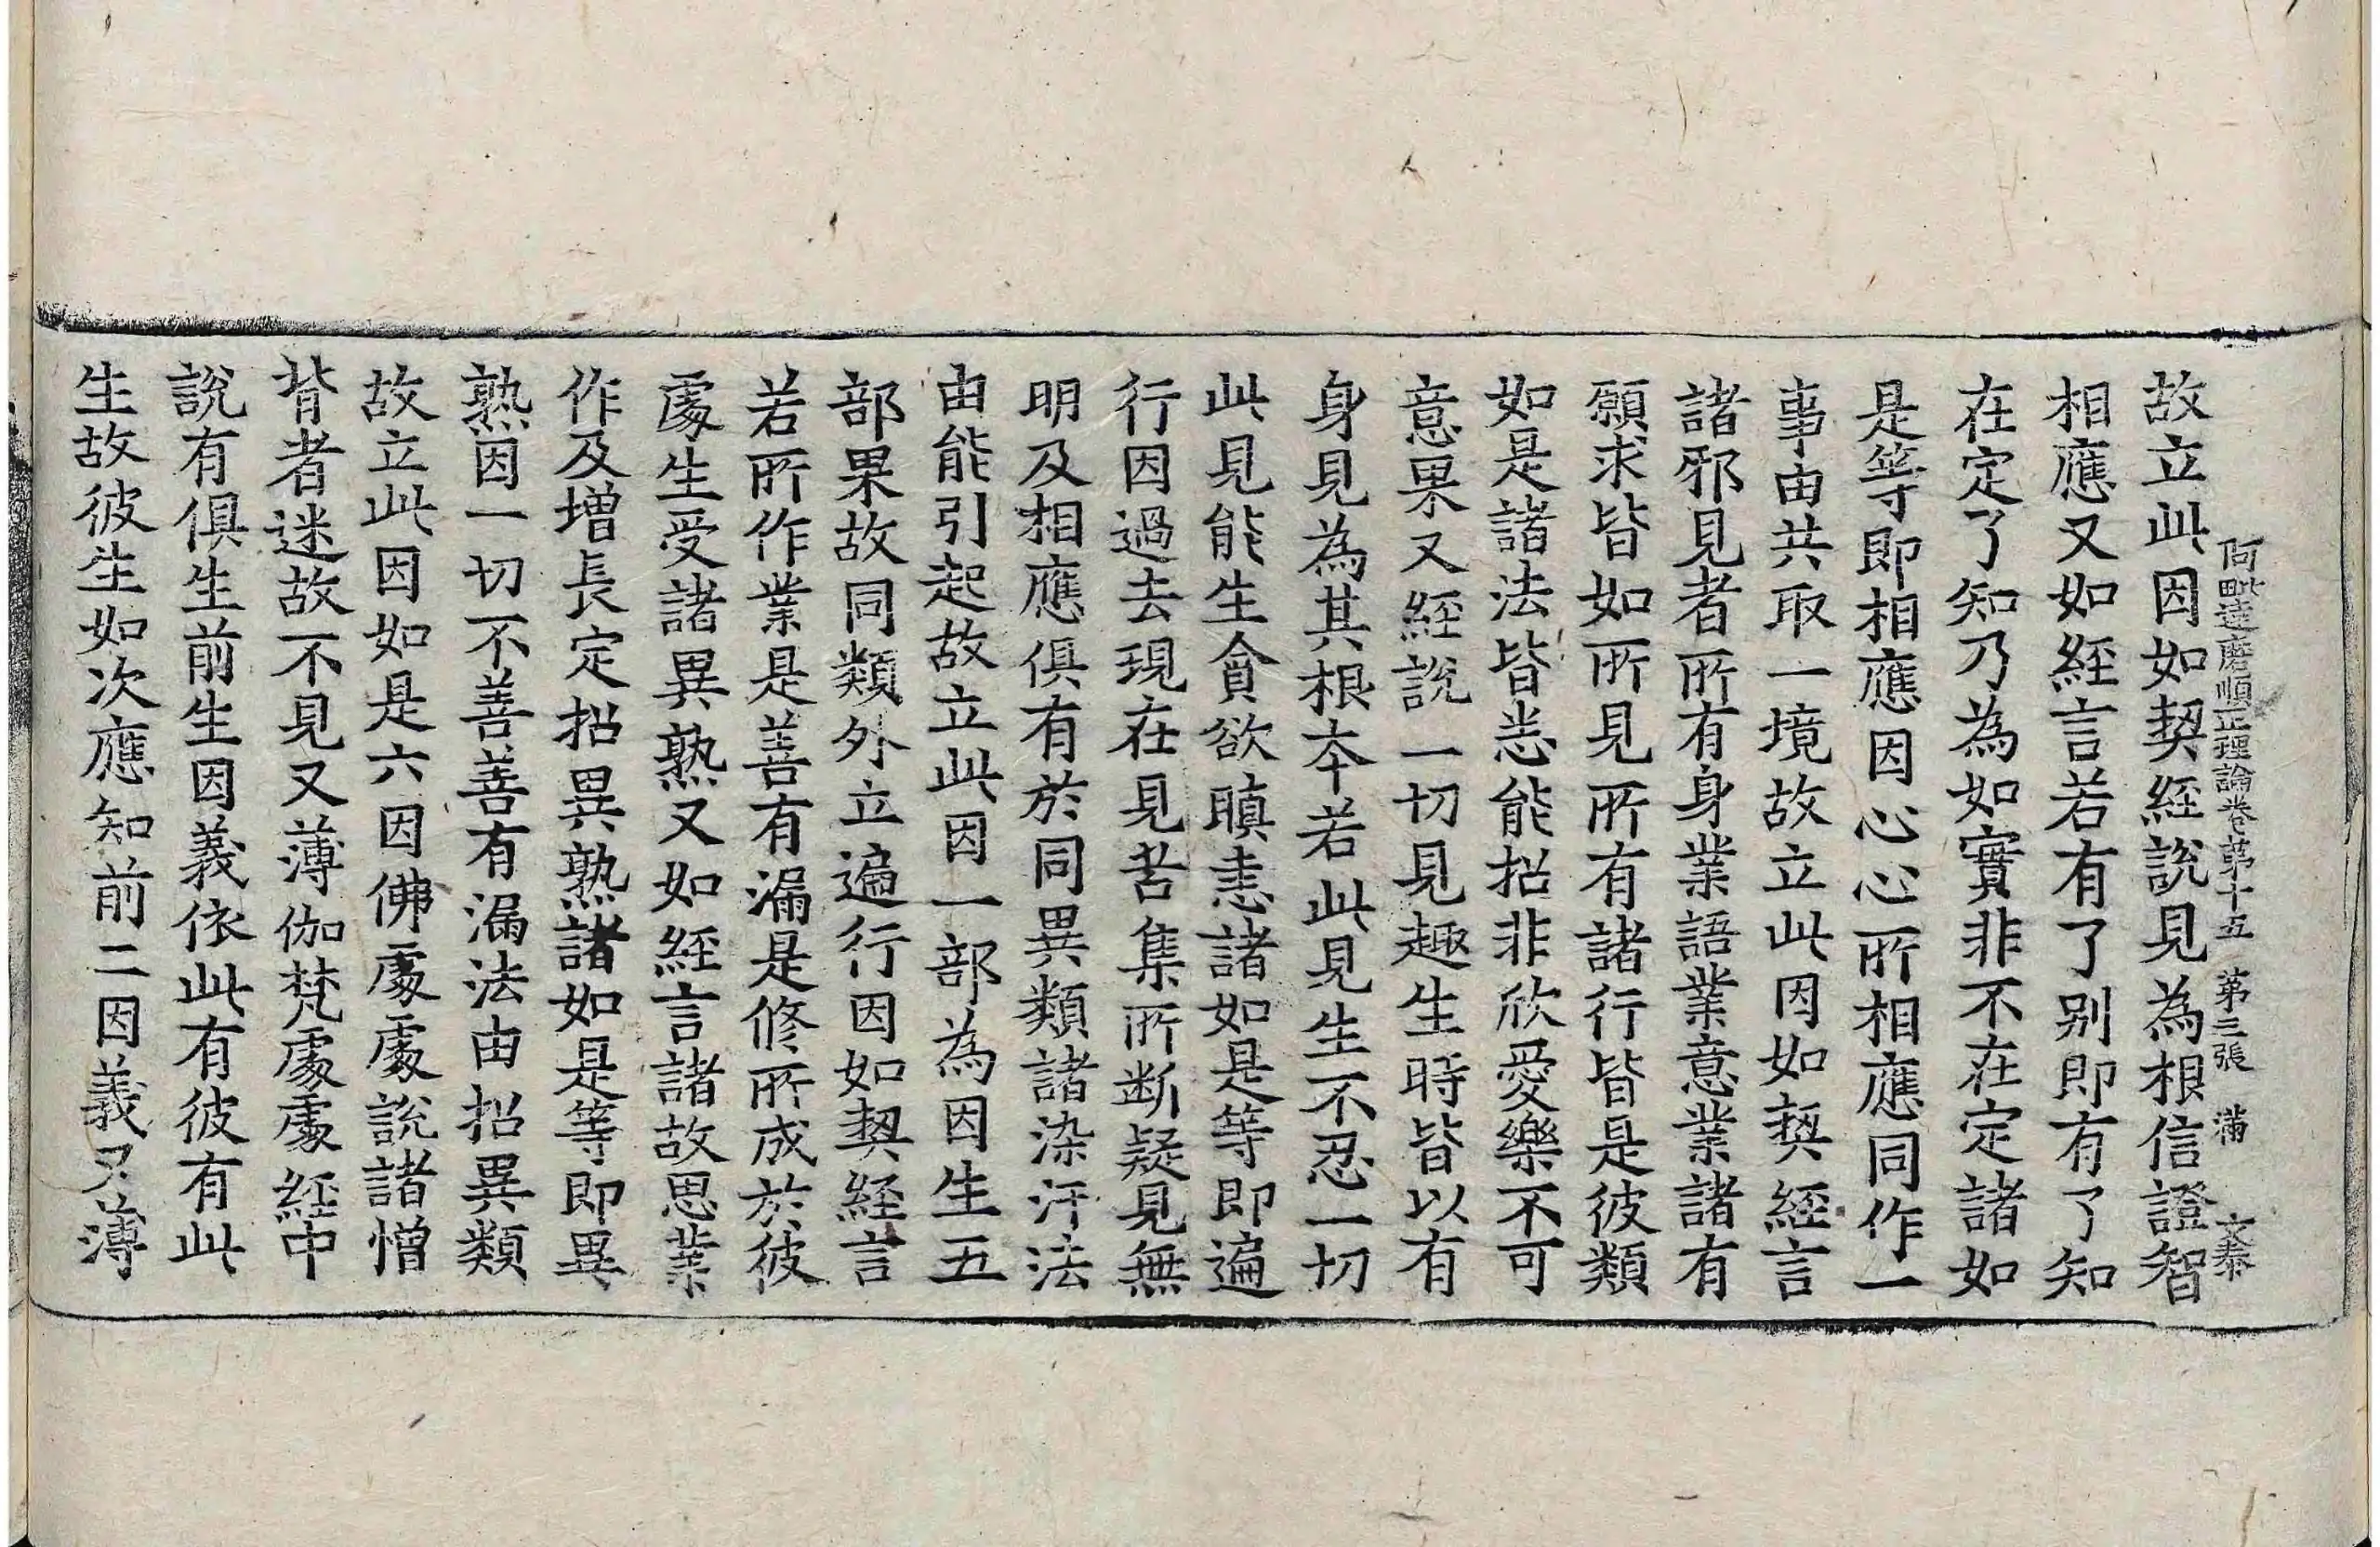 阿毗達磨順正理論卷第十五 第三張 滿 文泰
故立此因如契經說見為根信證智
相應又如經言若有了別即有了知
在定了知乃為如實非不在定諸如
是等即相應因心心所相應同作一
事由共取一境故立此因如契經言
諸邪見者所有身業語業意業諸有
願求皆如所見所有諸行皆是彼類
如是諸法皆悉能招非欣愛樂不可
意果又經說一切見趣生時皆以有
身見為其根本若此見生不忍一切
此見能生貪欲瞋恚諸如是等即遍
行因過去現在見苦集所断疑見無
明及相應俱有於同異類諸染汙法
由能引起故立此因一部為因生五
部果故同類外立遍行因如契經言
若所作業是善有漏是修所成於彼
處生受諸異熟又如經言諸故思業
作及增長定招異熟諸如是等即異
熟因一切不善善有漏法由招異類
故立此因如是六因佛處處說諸憎
背者迷故不見又薄伽梵處處經中
說有俱生前生因義依此有彼有此
生故彼生如次應知前二因義又薄